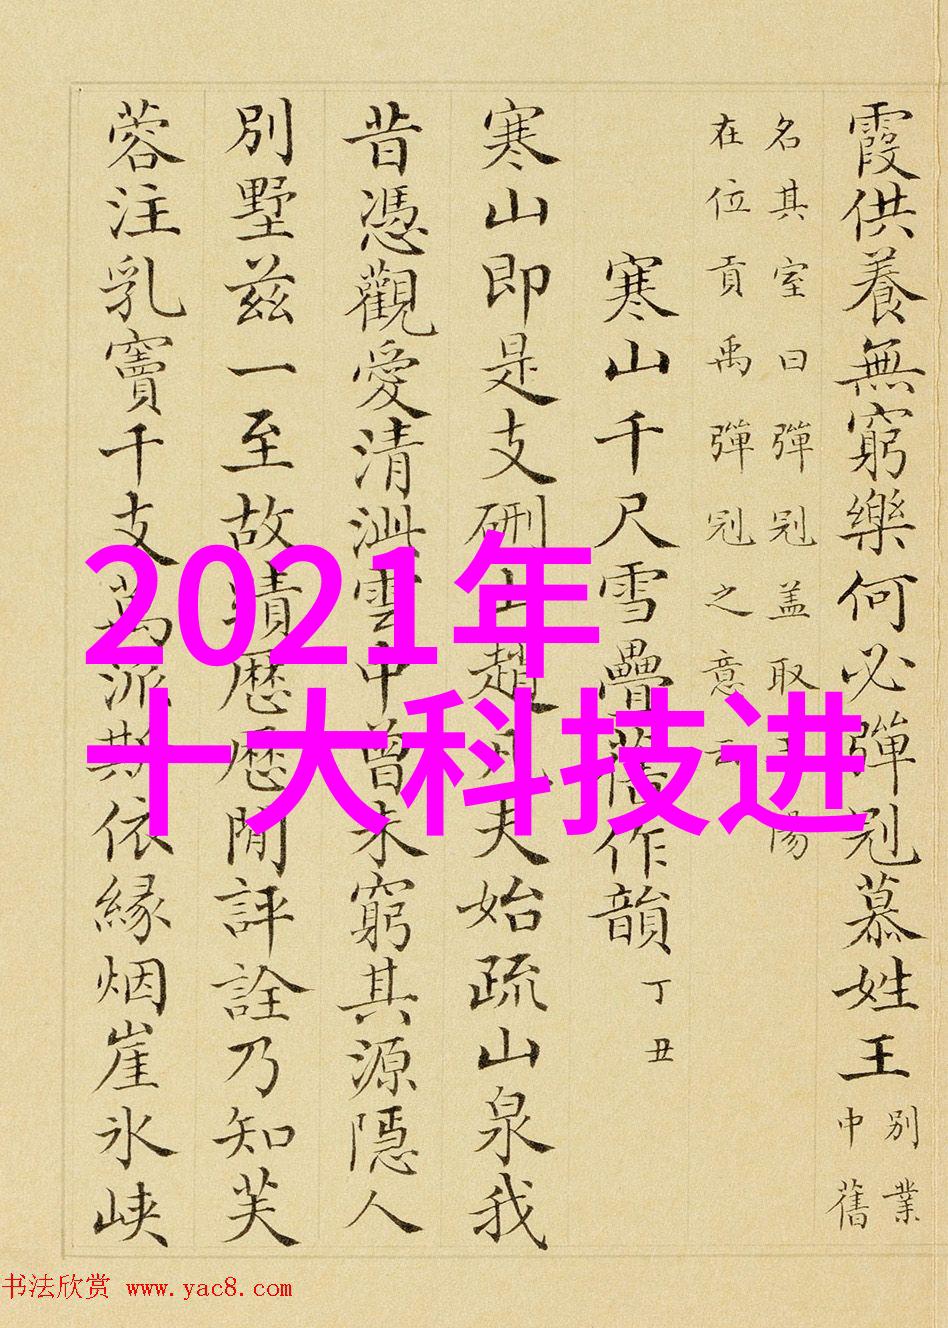 霞供養無窮樂何必彈冠慕姓王
別業
中舊
名其室曰彈冠盖取王陽
在位貢禹彈冠之意云
寒山千尺雪疊舊作韻
丁丑
寒山即是支硎山趙凡夫始疏山泉我
昔憑觀愛清泚雲中曾未窮其源隱人
別墅兹一至故蹟歷歷閒評詮乃知芙
蓉注乳竇千支萬派斯依緣烟崖氷峽
2021年
十大科技进
书法欣赏 www.yac8.com